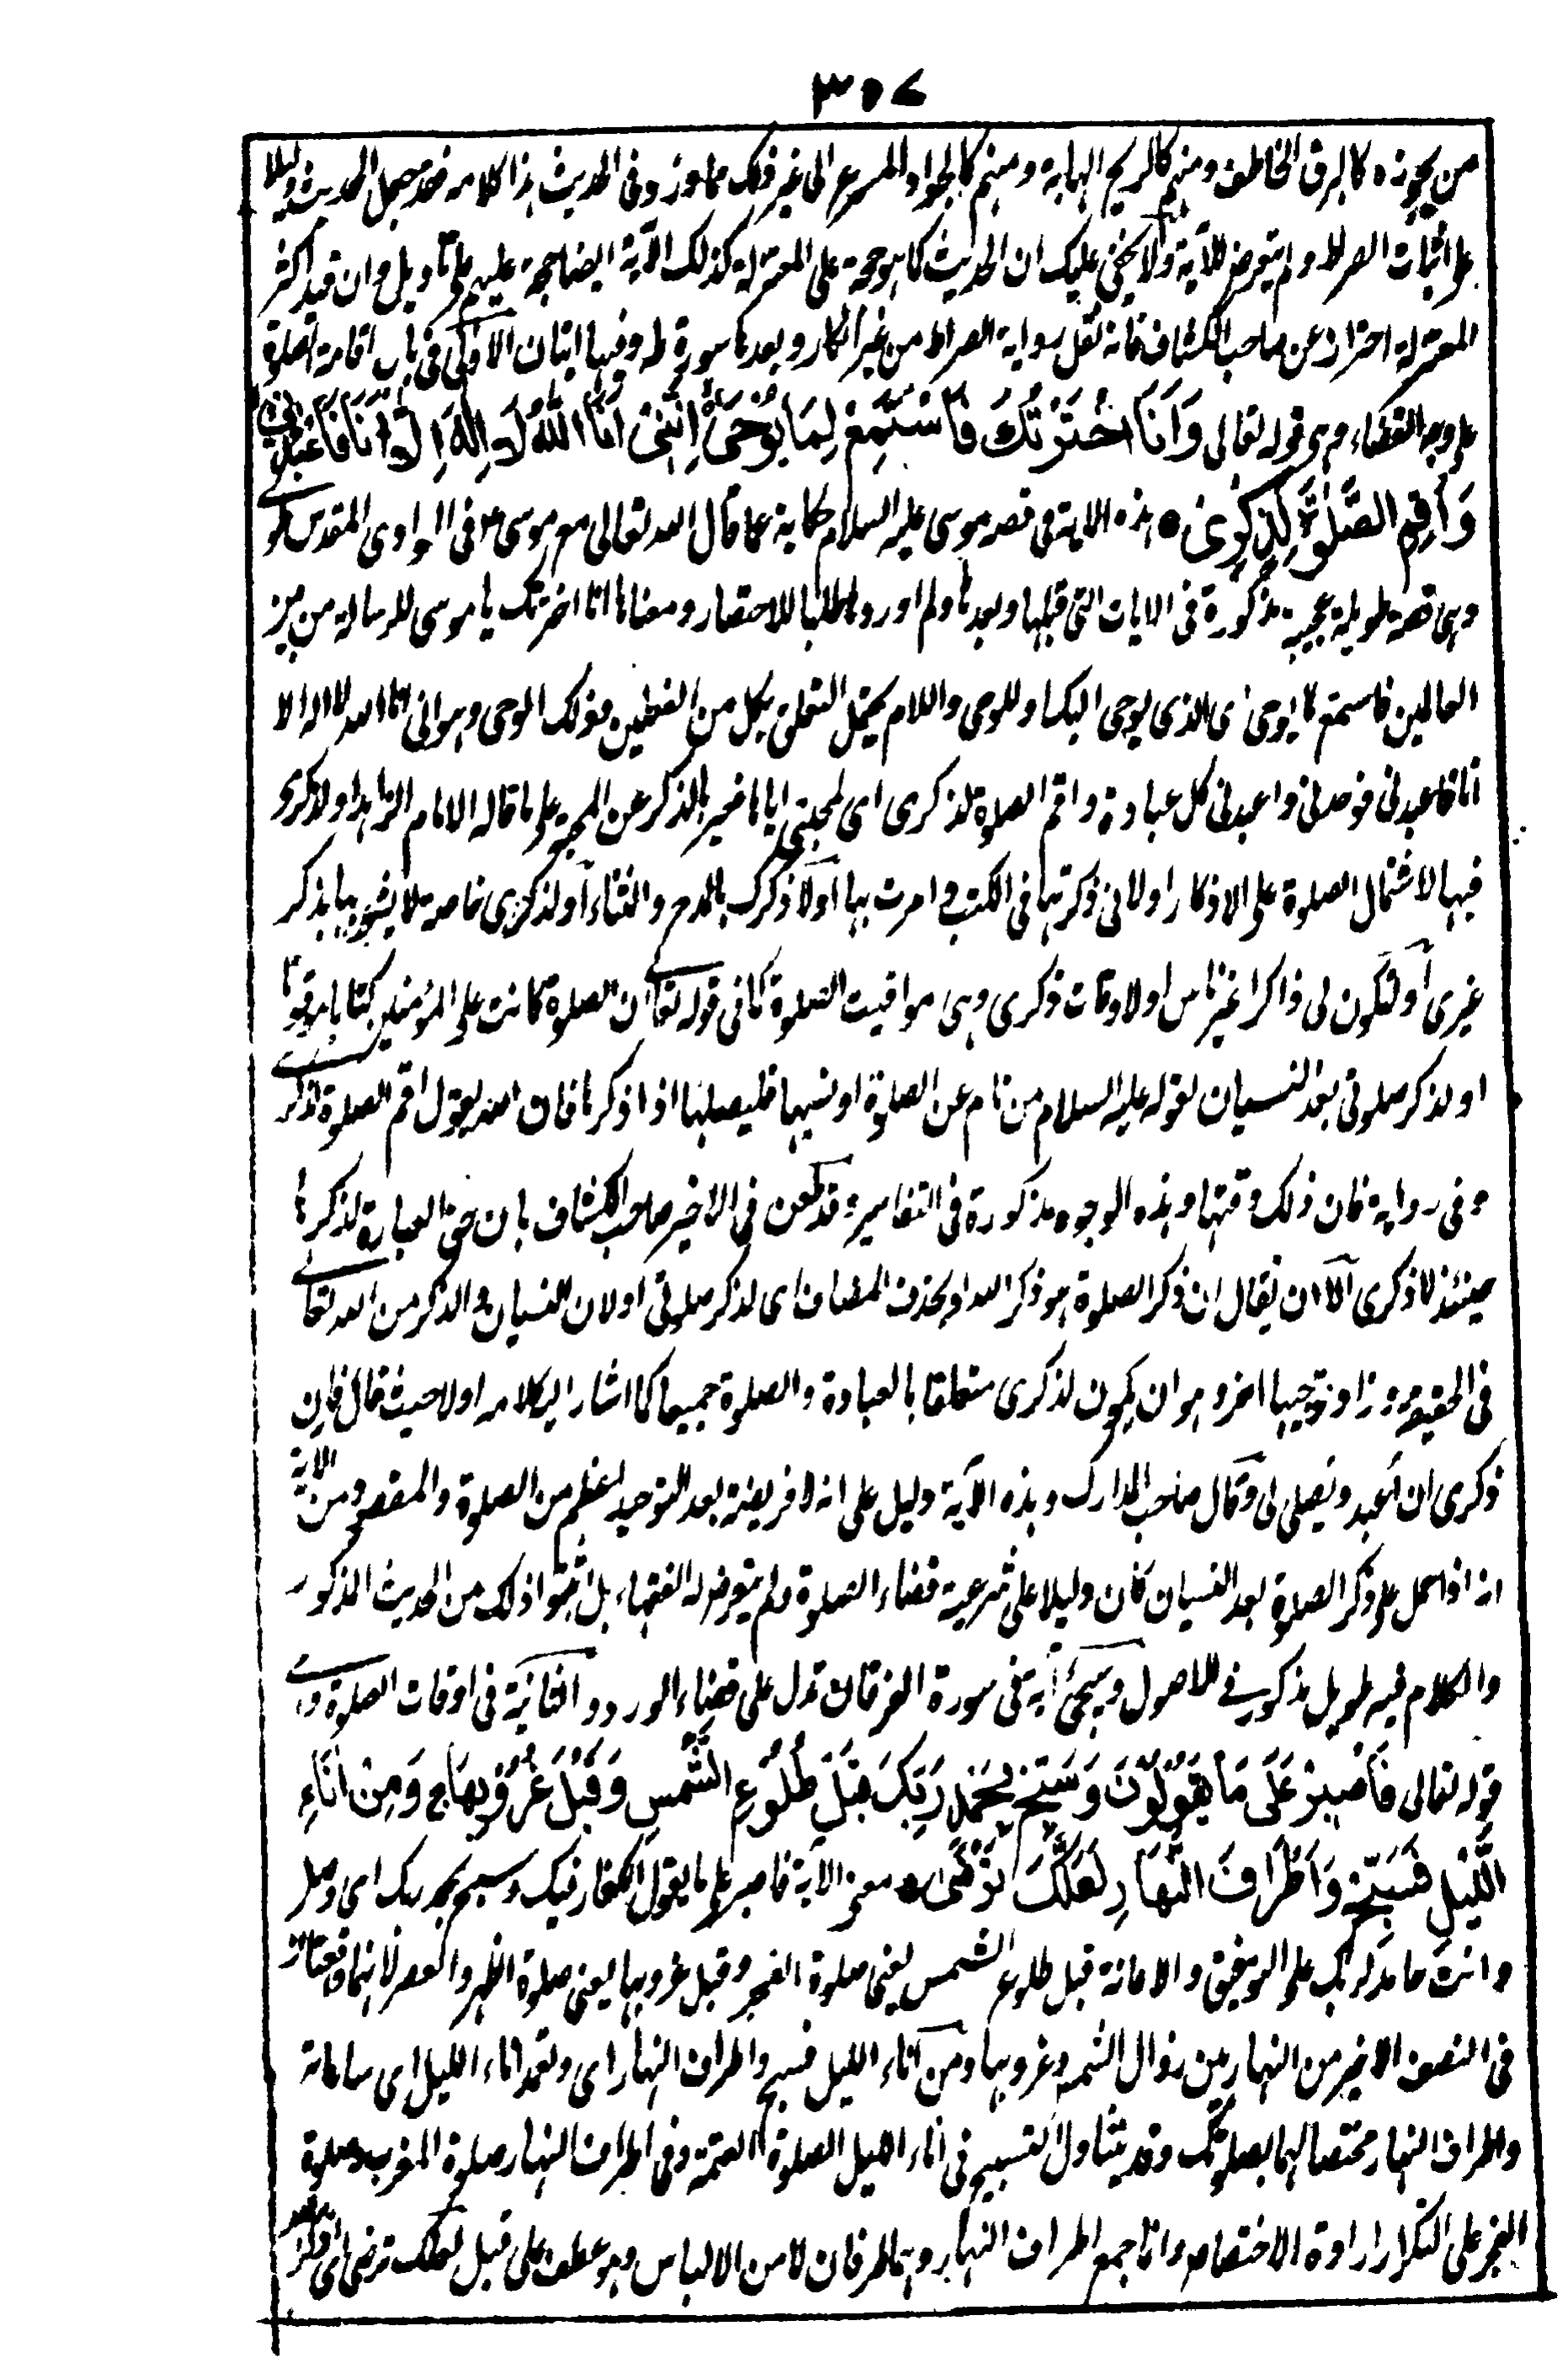 ٣٥٧
من يجوزه كالبرق الخاطف ومنهم كالريح الهابة ومنهم كالجواد المسرع الى غير ذلك مما ورد فى الحديث هذا كلامه فقد جعل الحديث دليلا
على اثبات الصراط ولم يتعرض للآية ولا يخفى عليك ان الحديث كما هو حجة على المعتزلة كذلك الآية ايضا حجة عليهم على تاويل وان قيد اكثر
المعتزلة احتراز عن صاحب الكشاف فانه نقل رواية الصراط من غير انكار وبعدها سورة طه وفيها ايتان الاولى فى باب اقامة الصلوة
على وجه القضاء وهى قوله تعالى وَاَنَا اخْتَرْتُكَ فَاسْتَمِعْ لِمَا يُوْحٰى اِنَّنِىْ اَنَا اللّٰهُ لَا اِلٰهَ اِلَّا اَنَا فَاعْبُدْنِىْ
وَاَقِمِ الصَّلٰوةَ لِذِكْرِىْ ٥ هذه الاية فى قصه موسى عليه السلام حكاية عما قال الله تعالى مع موسى ع فى الوادى المقدس طوى
وهى قصة طويلة عجيبة مذكورة فى الايات التى قبلها وبعدها ولم اوردها طلبا للاختصار ومعناها انا اخترتك يا موسى للرسالة من بين
العالمين فاستمع لما يوحى اى للذى يوحى اليك او للوحى واللام يحتمل التعلق بكل من الفعلين وذلك الوحى هو انى انا الله لا اله الا
انا فاعبدنى فوحدنى واعبدنى كل عبادة واقم الصلوة لذكرى اى لمحبتى اياها فعبر بالذكر عن المحبة على ما قاله الامام الزاهد او لذكرى
فيها لاشتمال الصلوة على الاذكار او لانى ذكرتها فى الكتب وامرت بها او لاذكرك بالمدح والثناء او لذكرى خاصة لا يشوبها بذكر
غيرى او لتكون لى ذاكرا غير ناس او لاوقات ذكرى وهى مواقيت الصلوة كما فى قوله تعالى ان الصلوة كانت على المؤمنين كتابا موقوتا
او لذكر صلوتى بعد النسيان لقوله عليه السلام من نام عن الصلوة او نسيها فليصلها اذا ذكرها فان الله يقول اقم الصلوة لذكرى
وفى رواية فان ذلك وقتها وهذه الوجوه مذكورة فى التفاسير وقد طعن فى الاخير صاحب الكشاف بان حق العبارة لذكرها
حينئذ لا ذكرى الا ان يقال ان ذكر الصلوة هو ذكر الله او بحذف المضاف اى لذكر صلوتى او لان النسيان والذكر من الله تعالى
فى الحقيقة وزاد توجيها اخر وهو ان يكون لذكرى متعلقا بالعبادة والصلوة جميعا كما اشار اليه كلامه اولا حيث قال فان
ذكرى ان اعبد ويصلى لى وقال صاحب المدارك وهذه الآية دليل على انه لا فريضة بعد التوحيد اعظم من الصلوة والمقصود من الاية
انه اذا حمل على ذكر الصلوة بعد النسيان كان دليلا على شرعية قضاء الصلوة ولم يتعرض له الفقهاء بل اثبتوا ذلك من الحديث المذكور
والكلام فيه طويل مذكور فى الاصول وسيجئ آية فى سورة الفرقان تدل على قضاء الورد والثانية فى اوقات الصلوة وهى
قوله تعالى فَاصْبِرْ عَلٰى مَا يَقُوْلُوْنَ وَسَبِّحْ بِحَمْدِ رَبِّكَ قَبْلَ طُلُوْعِ الشَّمْسِ وَقَبْلَ غُرُوْبِهَا ج وَمِنْ اٰنَآءِ
اللَّيْلِ فَسَبِّحْ وَاَطْرَافَ النَّهَارِ لَعَلَّكَ تَرْضٰى ٥ معنى الآية فاصبر على ما يقول الكفار فيك وسبح بحمد ربك اى وصل
وانت حامد لربك على التوفيق والاعانة قبل طلوع الشمس يعنى صلوة الفجر وقبل غروبها يعنى صلوة الظهر والعصر لانهما واقعتان
فى النصف الاخير من النهار بين زوال الشمس وغروبها ومن آناء الليل فسبح واطراف النهار اى وتعمد اناء الليل اى ساعاته
واطراف النهار مختصا لهما بصلوتك وقد يتناول التسبيح فى اناء الليل الصلوة العتمة وفى اطراف النهار صلوة المغرب وصلوة
الفجر على التكرار ارادة الاختصاص وانما جمع اطراف النهار وهما طرفان لامن الالباس وهو عطف على قبل لعلك ترضى اى